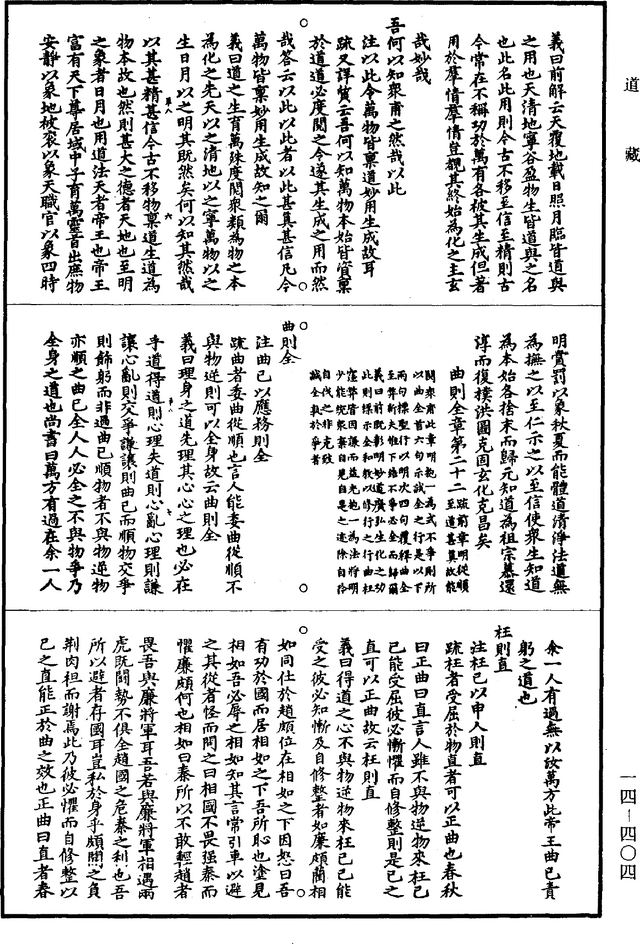 道藏
義曰前解云天覆地載日照月臨皆道與
之用也天清地寧谷盈物生皆道與之名
也此名此用則今古不移至信至精則古
今常在不稱功於萬有各被其生成但著
用於羣情羣情豈覩其終始為化之主玄
哉妙哉
吾何以知衆甫之然哉以此
注以此今萬物皆稟道妙用生成故耳
疏又詳質云吾何以知萬物本始皆資稟
於道道必度閱之令遂其生成之用而然
哉荅云以此以此者以此甚真甚信凡今
萬物皆稟妙用生成故知之爾
義曰道之生育萬殊度閱衆類為物之本
為化之先天以之清地以之寧萬物以之
生日月以之明其既然矣何以知其然哉
以其甚精甚信今古不移物稟道生道為
物本故也然則甚大之德者天地也至明
之象者日月也用道法天者帝王也帝王
富有天下尊居域中子育萬靈首出庶物
安靜以象地被袞以象天職官以象四時
明賞罰以象秋夏而能體道清淨法道無
為撫之以至仁示之以至信使衆生知道
為本始各捨末而歸元知道為祖宗慕還
淳而復樸洪圖克固玄化克昌矣
曲則全章第二十二
疏前章明從順
至道甚真故能
閱衆甫此章明抱一為式不爭則所
以曲全首六句示誠全之行是以下
兩句標聖行以明次四句覆釋曲全
至弊新矣惟下結不爭必全而歸爾
義曰前既彰明妙道廣弘生化之功
此則標示全和教以修行之行曲枉
窪弊皆因謙而益光抱一為法將明
少能兼衆素自見自是之迹除自矜
自伐之非克致
誠全孰於爭者
曲則全
注曲已以應務則全
疏曲者委曲從順也言人能委曲從順不
與物逆則可以全身故云曲則全
義曰理身之道先理其心心之理也必在
乎道得道則心理失道則心亂心理則謙
讓心亂則交爭謙讓則曲己而順物交爭
則飾躬而非過曲已順物者不與物逆物
亦順之曲已全人人必全之不與物爭乃
全身之道也尚書曰萬方有過在余一人
余一人有過無以汝萬方此帝王曲已責
躬之道也
枉則直
注枉已以申人則直
疏枉者受屈於物直者可以正曲也春秋
曰正曲曰直言人雖不與物逆物來枉已
已能受屈彼必慚懼而自修整則是已之
直可以正曲故云枉則直
義曰得道之心不與物逆物來枉已已能
受之彼必知慚及自修整者如廉頗藺相
如同仕於趙頗位在相如之下因怨曰吾
有功於國而居相如之下吾所恥也塗見
相如吾必辱之相如知其言常引車以避
之其從者怪而問之曰相國不畏强秦而
懼廉頗何也相如曰秦所以不敢輕趙者
畏吾與廉將軍耳吾若與廉將軍相遇兩
虎既鬪勢不俱全趙國之危秦之利也吾
所以避者存國耳豈私於身乎頗聞之負
荆肉袒而謝焉此乃彼必懼而自修整以
已之直能正於曲之效也正曲曰直者春
一四－四〇四